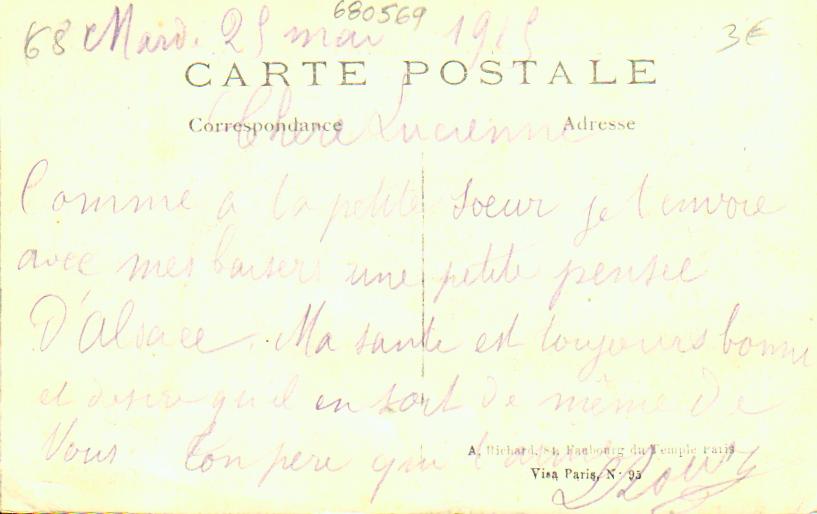 680569
68 Mardi 25 mai 1915 3€
CARTE POSTALE
Correspondance Adresse
Chère Lucienne
Comme a ta petite soeur je t'envoie
avec mes baisers une petite pensée
D'alsace. Ma santé est toujours bonne
et desire qu'il en soit de même de
Vous Ton père qui t'aime
A. Richard, 84, Faubourg du Temple Paris
Visa Paris, N° 95